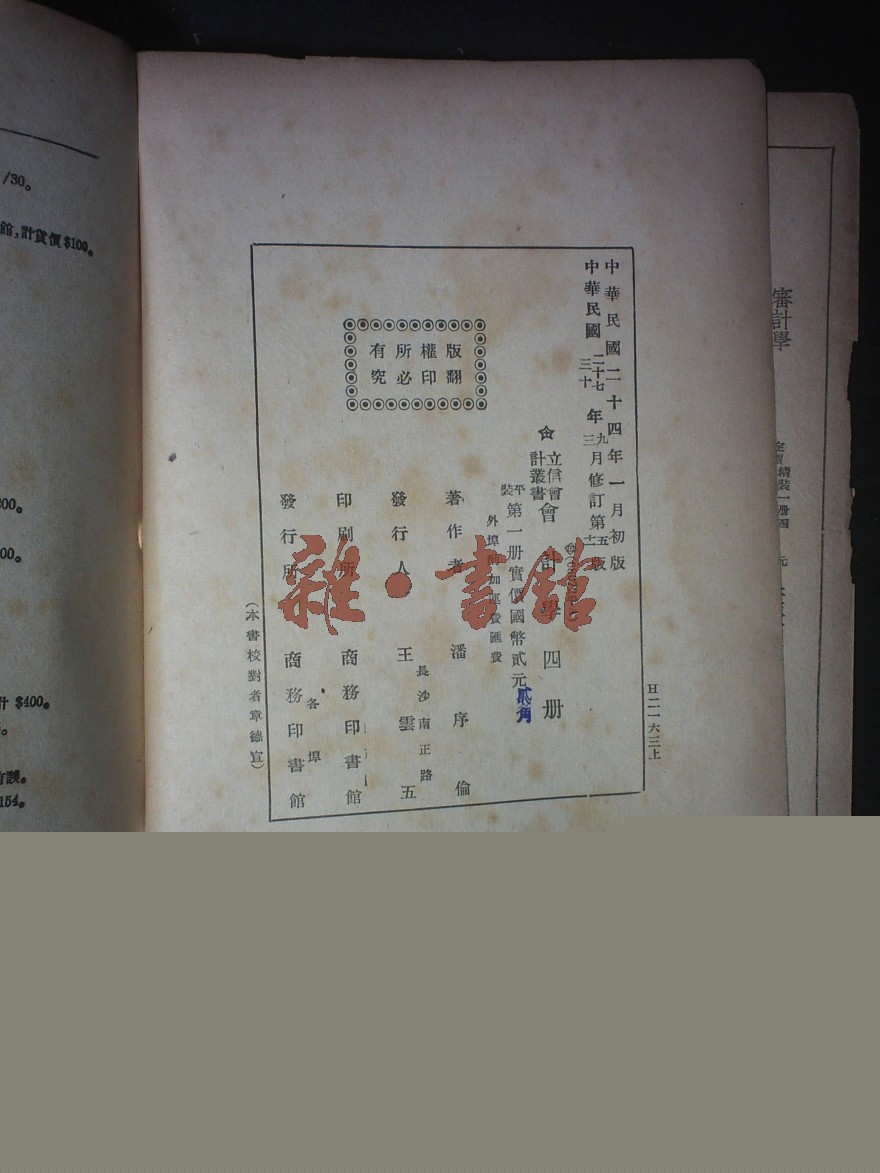 中華民國二十四年一月初版
中華民國二十七年九月修訂第五版
三十 三 十二
立信會計叢書
會計學 四册
平裝 第一册實價國幣貳元
貳角
外埠 加運費匯費
著作者 潘序倫
發行人 王雲五
長沙南正路
印刷所 商務印書館
發行所 商務印書館
各埠
版權所有
翻印必究
(本書校對者章德宣)
H二一六三上
雜·書館
審計學
/30。
館,計貨價$100。
計 $400。
154。